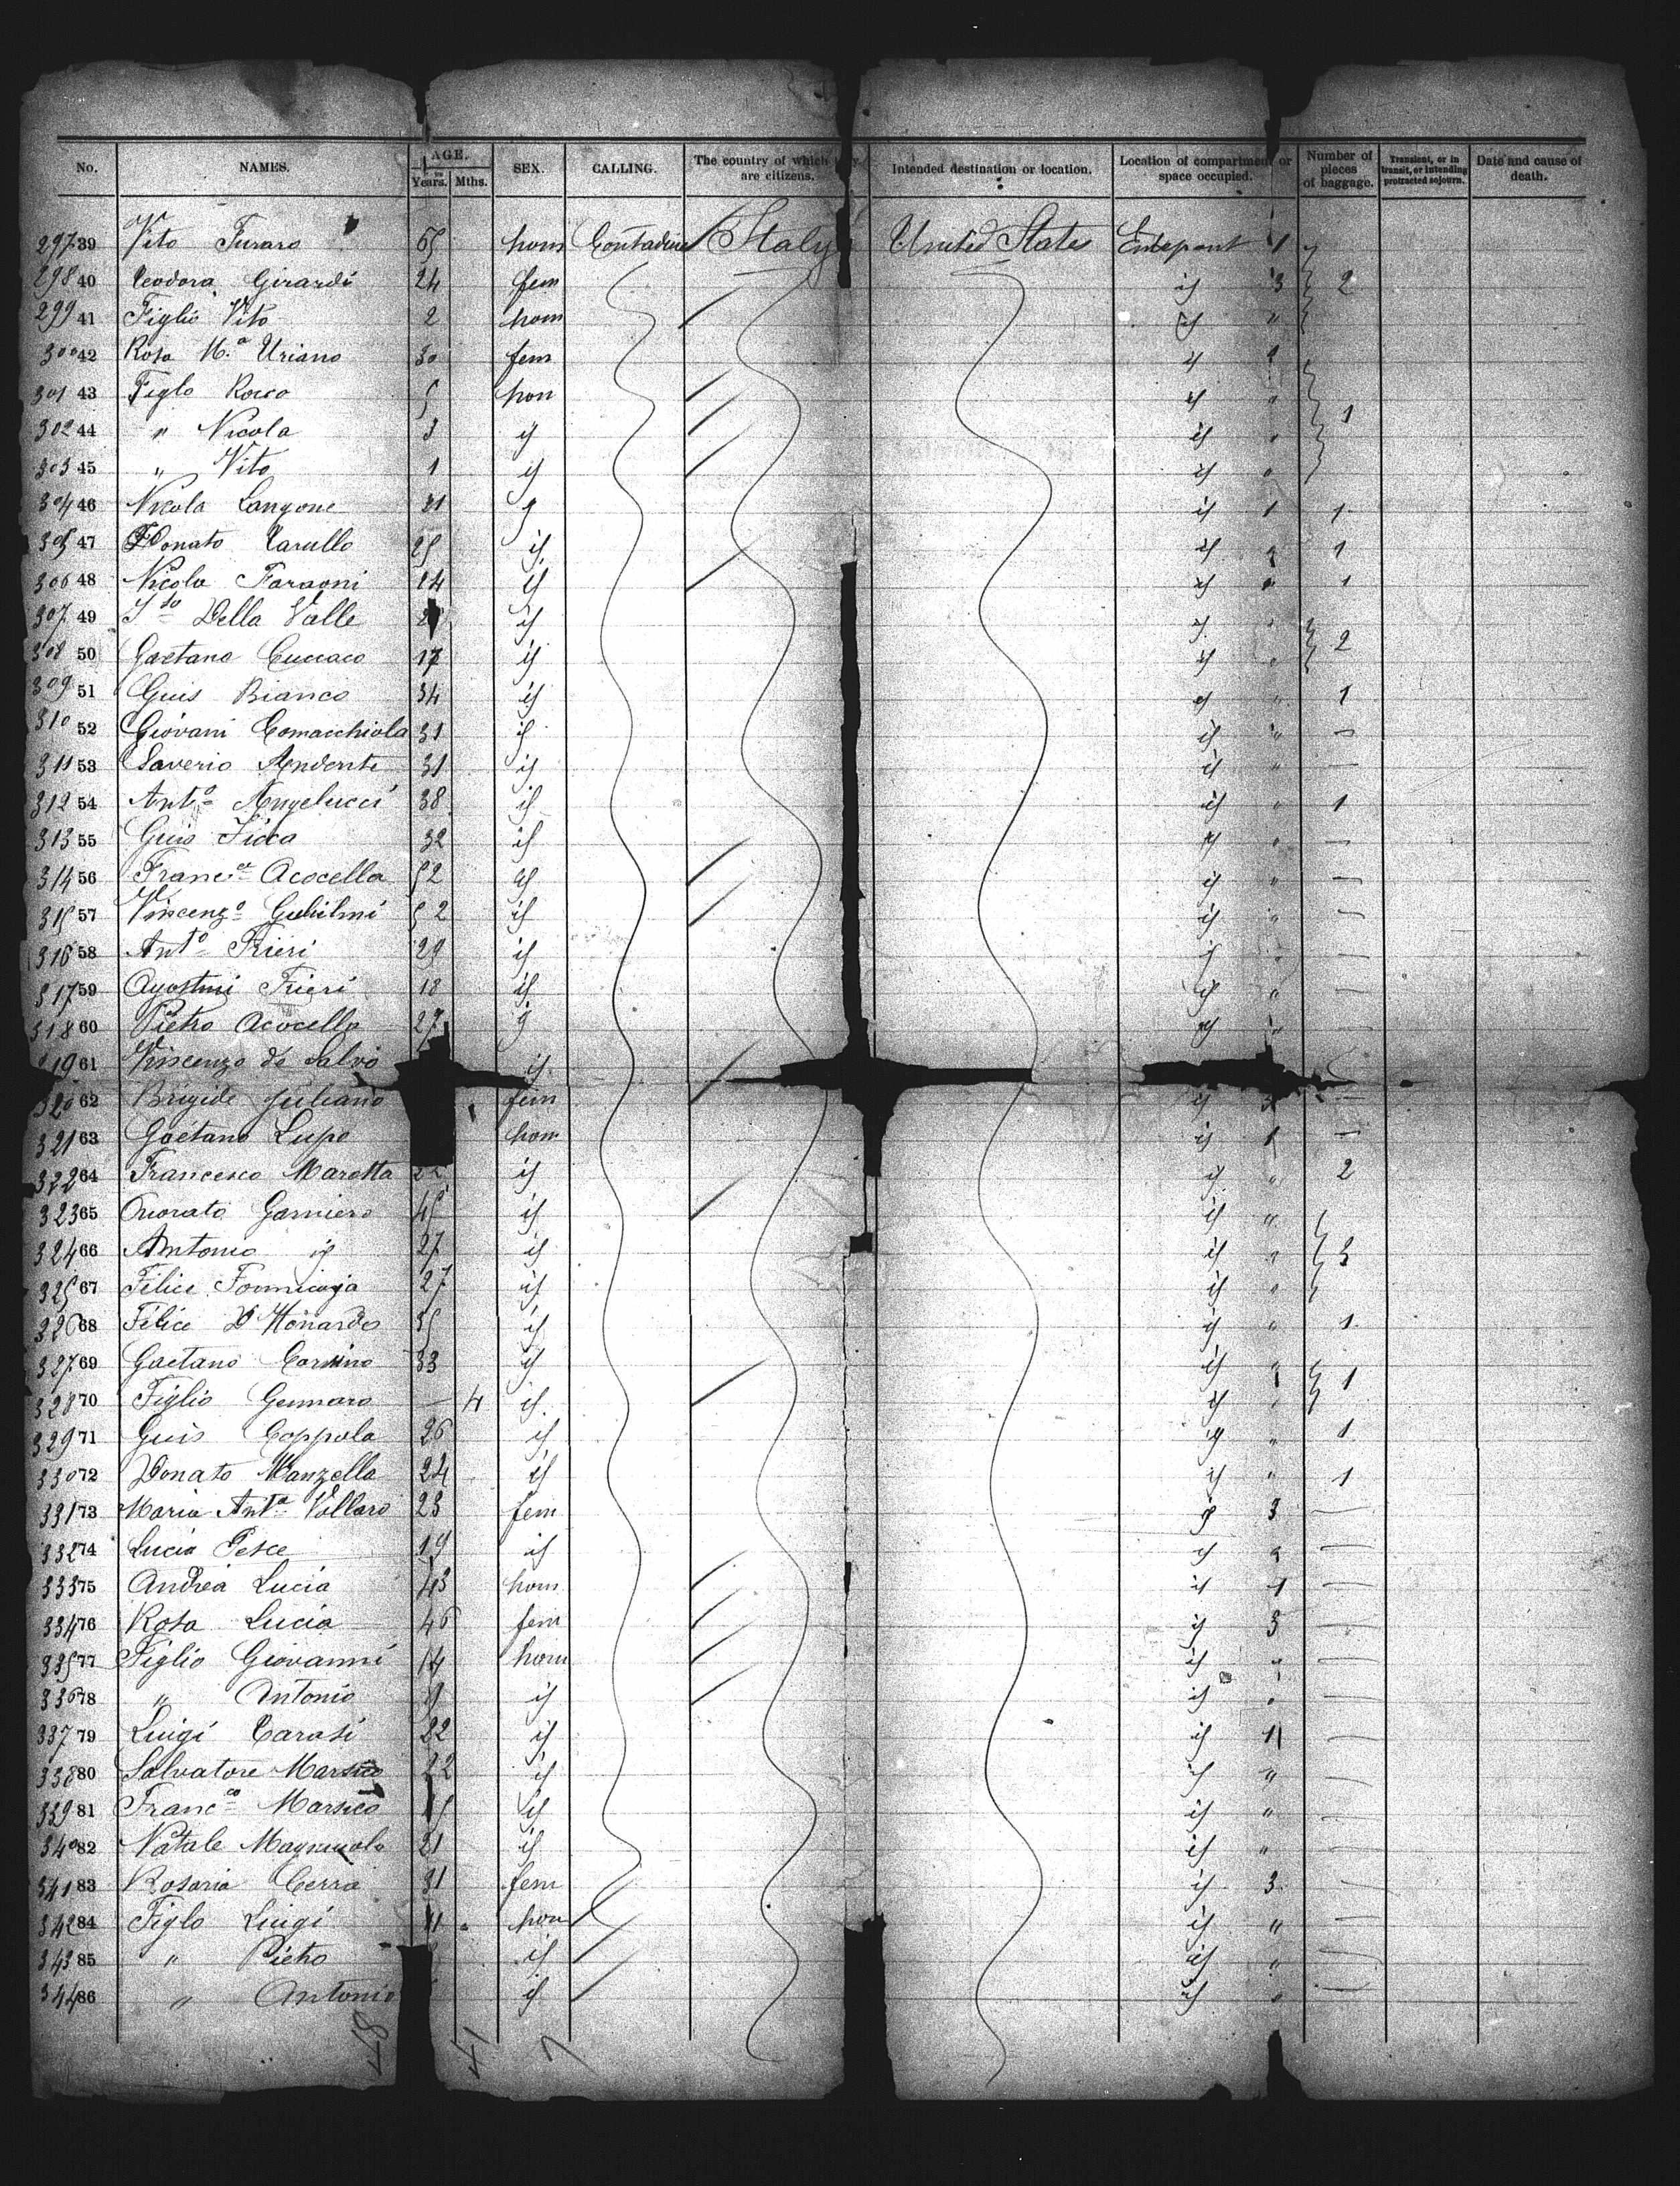 No. NAMES. AGE. Years. Mths. SEX. CALLING. The country of which they are citizens. Intended destination or location. Location of compartment or space occupied. Number of pieces of baggage. Transient, or in transit, or intending protracted sojourn. Date and cause of death.
297 39 Vito Furaro 65 hom Contadine Italy United States Entrepont 1
298 40 Teodora Girardi 24 fem id 3 2
299 41 Figlio Vito 2 hom id "
300 42 Rosa M.a Uriano 30 fem id "
301 43 Figlo Rocco 5 hom id " 1
302 44 " Nicola 3 id id "
303 45 " Vito 1 id id "
304 46 Nicola Langone 21 id id 1 1
305 47 Donato Carullo 25 id id " 1
306 48 Nicola Faraoni 24 id id " 1
307 49 Della Valle id id " 2
308 50 Gaetano Cuccaco 17 id id "
309 51 Guis Bianco 34 id id " 1
310 52 Giovani Comacchiola 31 id id " —
311 53 Saverio Andenti 31 id id " —
312 54 Anto Angelucci 38 id id " 1
313 55 Guis Ficca 32 id id " —
314 56 Franc.co Acocella 52 id id " —
315 57 Vincenzo Gulielmi 52 id id " —
316 58 Anto Frieri 29 id id " —
317 59 Agostini Frieri 18 id id " —
318 60 Pietro Acocella 27 id id " —
319 61 Vincenzo de Salvo id
320 62 Brigide Juliano fem id 3 —
321 63 Gaetano Lupo hom id 1 —
322 64 Francesco Marotta 22 id id " 2
323 65 Onorato Garniero 45 id id "
324 66 Antonio id 27 id id " 3
325 67 Felice 27 id id "
326 68 Felice D'Honardo 35 id id " 1
327 69 Gaetano Corsino 33 id id " 1
328 70 Figlio Gennaro — 4 id id "
329 71 Guis Coppola 26 id id " 1
330 72 Donato Manzella 24 id id " 1
331 73 Maria Anta Vollaro 23 fem id 3 —
332 74 Lucia Pesce 19 id id " —
333 75 Andrea Lucia 43 hom id 1 —
334 76 Rosa Lucia 46 fem id 3 —
335 77 Figlio Giovanni 14 hom id " —
336 78 " Antonio 9 id id " —
337 79 Luigi Carasi 22 id id 1 —
338 80 Salvatore Marsico 22 id id " —
339 81 Franc.co Marsico id id " —
340 82 Natale Magnuolo 21 id id " —
341 83 Rosaria Cerra 31 fem id 3 —
342 84 Figlo Luigi 11 hom id " —
343 85 " Pietro id id " —
344 86 " Antonio id id " —
48 41 7